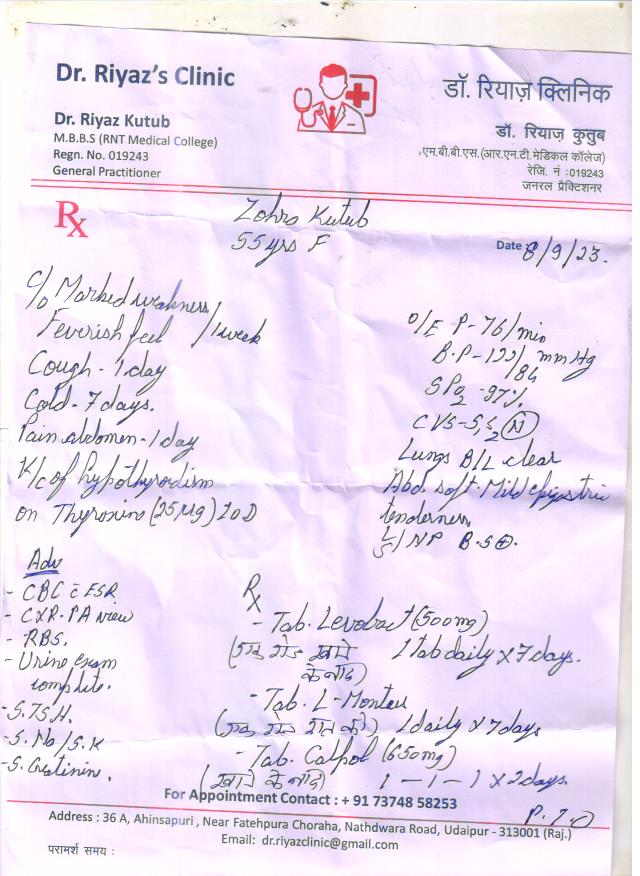 Dr. Riyaz's Clinic
Dr. Riyaz Kutub
M.B.B.S (RNT Medical College)
Regn. No. 019243
General Practitioner
डॉ. रियाज़ क्लिनिक
डॉ. रियाज़ कुतुब
एम.बी.बी.एस.(आर.एन.टी.मेडिकल कॉलेज)
रेजि. नं :019243
जनरल प्रैक्टिशनर
Rx
Zohra Kutub
55yrs F
Date 8/9/23.
c/o Marked weakness/
Feverish feel /1week
Cough - 1day
Cold - 7 days.
Pain abdomen - 1 day
K/c of hypothyrodism
on Thyroxine (25µg) 1OD
O/E P-76/min
B.P-122/84 mmHg
SPO2 -97%.
CVS-S1S2 (N)
Lungs B/L clear
Abd. soft. Mild epigastric
tenderness,
L/S/NP B.S⊕.
Adv
- CBC c̄ ESR
- CXR-PA view
- RBS.
- Urine exam
complete.
- S.TSH.
- S.Na/S.K
- S.Creatinin.
Rx
- Tab. Levobact (500mg)
(एक रोज खाने 1 tab daily x 7 days.
के बाद)
- Tab. L-Montus
(एक रोज रात को) 1 daily x 7days
- Tab. Calpol (650mg)
(खाने के बाद) 1-1-1 x 2days.
For Appointment Contact : + 91 73748 58253
P.T.O
Address : 36 A, Ahinsapuri , Near Fatehpura Choraha, Nathdwara Road, Udaipur - 313001 (Raj.)
Email: dr.riyazclinic@gmail.com
परामर्श समय :